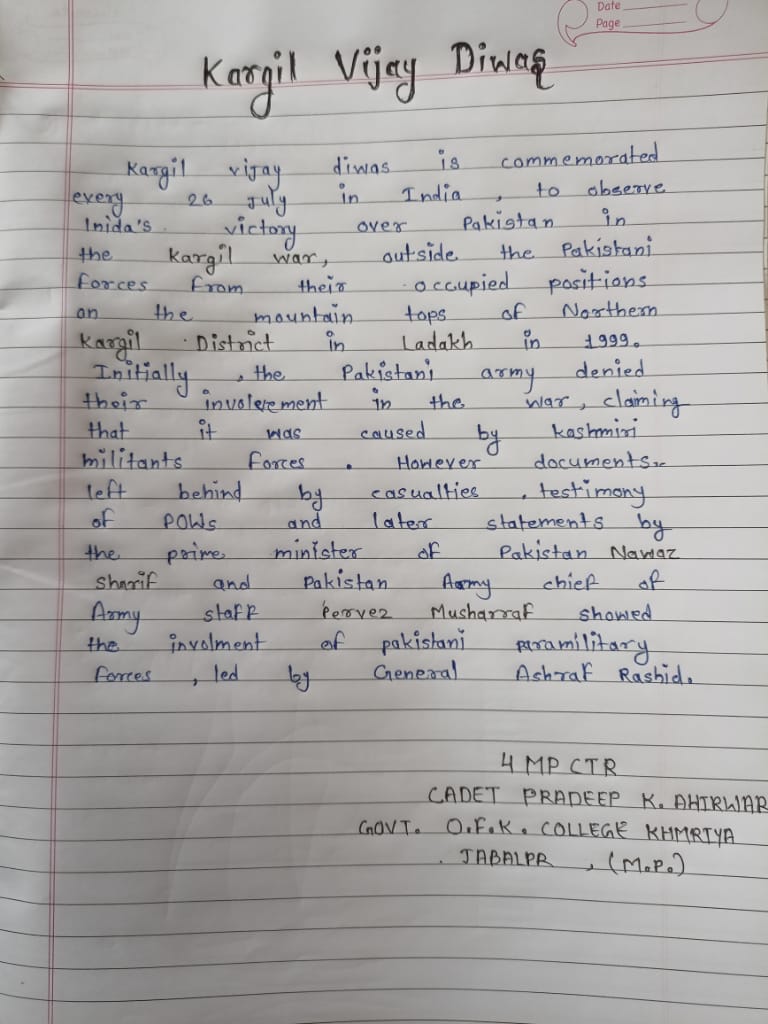 Date
Page
Kargil Vijay Diwas
Kargil vijay diwas is commemorated
every 26 July in India , to observe
Inida's victory over Pakistan in
the Kargil war, outside the Pakistani
forces from their occupied positions
on the mountain tops of Northern
Kargil District in Ladakh in 1999.
Initially , the Pakistani army denied
their involevement in the war, claiming
that it was caused by kashmiri
militants forces . However documents
left behind by casualties , testimony
of POWs and later statements by
the prime minister of Pakistan Nawaz
Sharif and Pakistan Army chief of
Army staff Pervez Musharraf showed
the involment of pakistani paramilitary
forces , led by General Ashraf Rashid.
4 MP CTR
CADET PRADEEP K. AHIRWAR
GOVT. O.F.K. COLLEGE KHMRIYA
JABALPR , (M.P.)